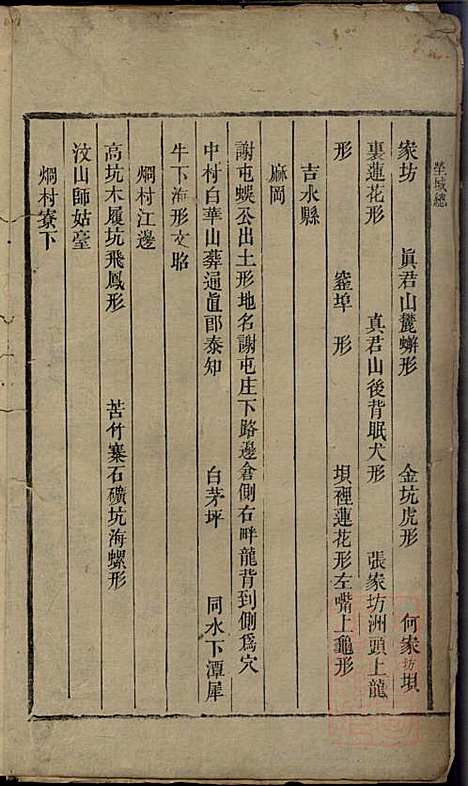 塋域總
家坊　眞君山麓蠏形　金坑虎形　何家坊垻
裏蓮花形　真君山後背眠犬形　張家坊洲頭上龍
形　窰埠形　垻裡蓮花形左嘴上龜形
吉水縣
麻岡
謝屯蜈公出土形地名謝屯庄下路邊倉側右畔龍背到側爲穴
中村白華山葬通眞郎泰知　白茅坪　同水下潭犀
牛下海形文昭
烱村江邊
高坑木履坑飛鳳形　苦竹寨石礦坑海螺形
汶山師姑臺
烱村寮下